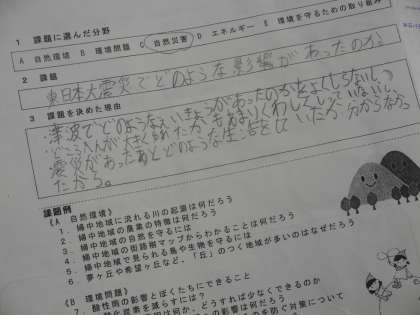 1 課題に選んだ分野
A 自然環境 B 環境問題 C 自然災害 D エネルギー E 環境を守るための取り組み
2 課題
東日本大震災でどのような影響があったのか?
3 課題を決めた理由
津波でどのようなえいきょうがあったのかをよくしらないし
どこらへんが大きくゆれたか
震災があったあとどのような生活をしていたか分からなかっ
たから。
課題例
《A 自然環境》
1. 婦中地域に流れる川の起源は何だろう
2. 婦中地域の農業の特徴は何だろう
3. 婦中地域の自然を守るには
4. 婦中地域の街路樹マップからわかることは何だろう
5. 婦中地域で見られる鳥や生物を守るには
6. 夢ヶ丘や希望ヶ丘など、「丘」のつく地域が多いのはなぜだろう
《B 環境問題》
7. 酸性雨の影響とぼくたちにできること
二酸化炭素を減らすには?
は何か、どうすれば少なくできるのか
の影響は何だろう
を防ぐ対策について